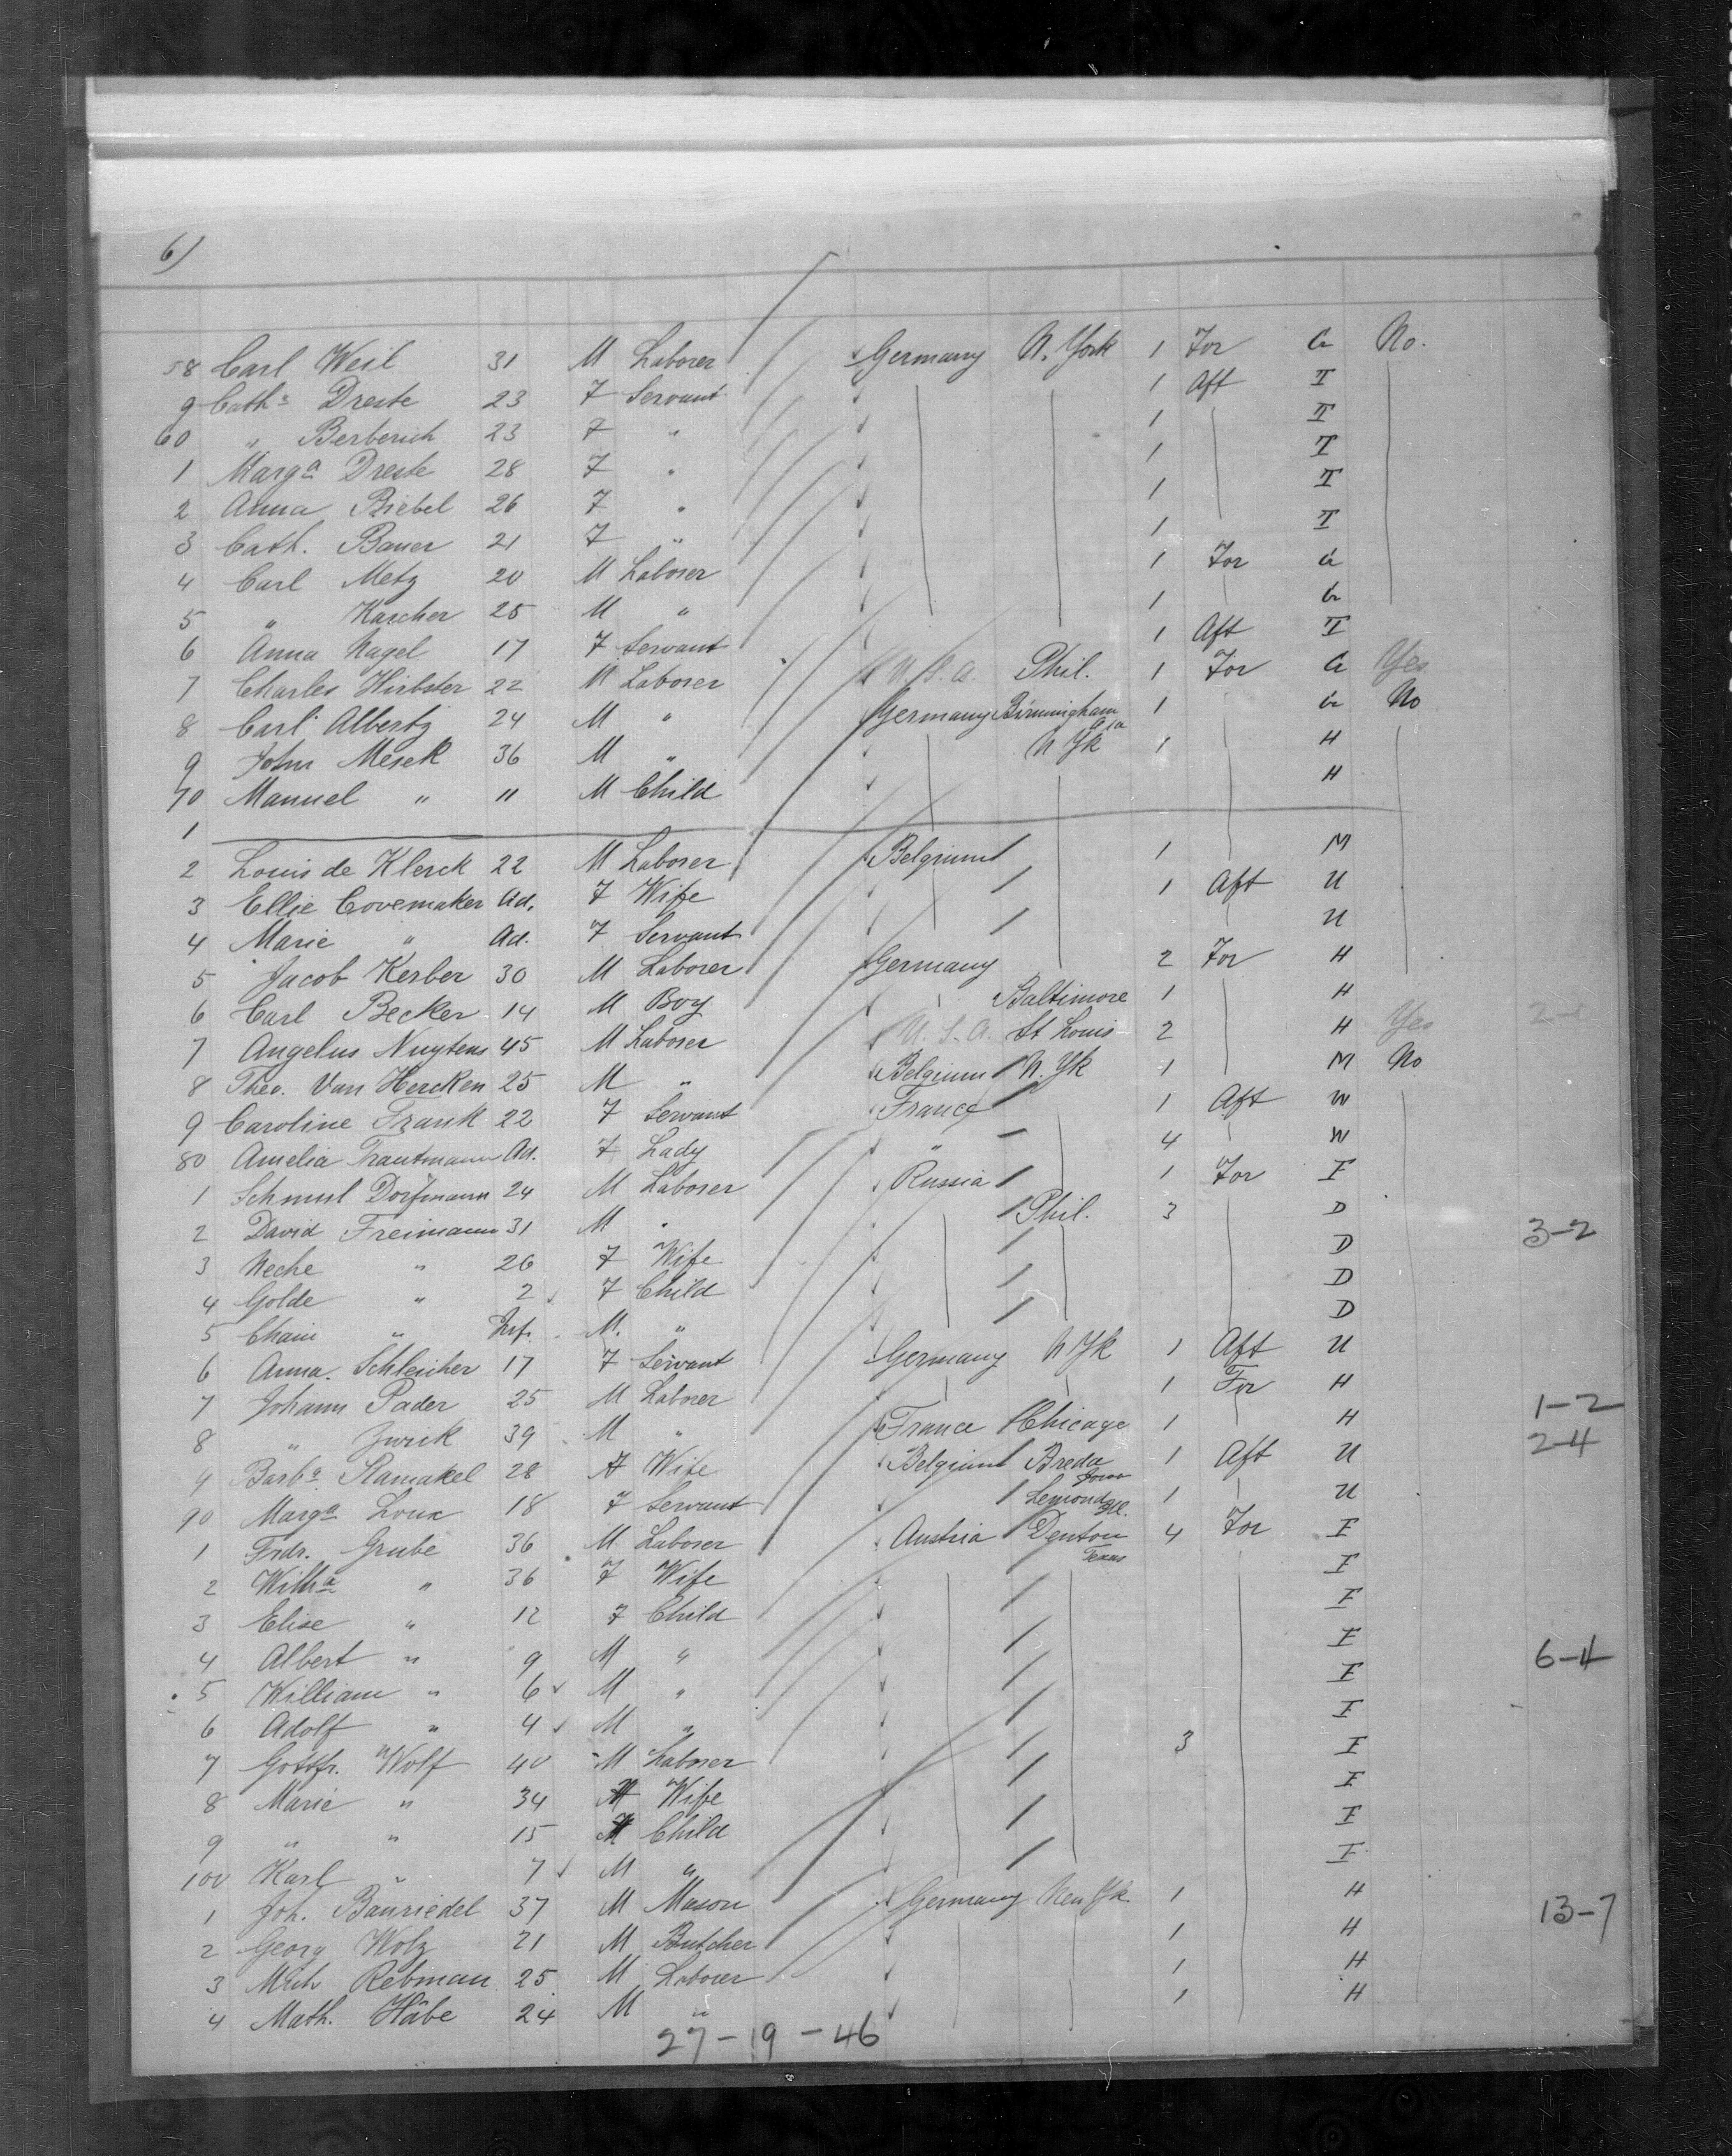 6)
58 Carl Weil 31 M Laborer Germany N. York 1 For G No.
9 Cath.a Dreste 23 F Servant 1 Aft I
60 " Berberich 23 F " 1 I
1 Marg.a Dreste 28 F " 1 I
2 Anna Biebel 26 F " 1 I
3 Cath. Bauer 21 F " 1 I
4 Carl Metz 20 M Laborer 1 For G
5 " Karcher 25 M " 1 G
6 Anna Nagel 17 F Servant 1 Aft I
7 Charles Hirbster 22 M Laborer U.S.A. Phil. 1 For G Yes
8 Carl Albertz 24 M " Germany Birmingham 1 G No
9 John Mesek 36 M " N Yk 1 H
70 Manuel " 11 M Child H
1
2 Louis de Klerck 22 M Laborer Belgium 1 M
3 Ellie Covemaker Ad. F Wife 1 Aft U
4 Marie " Ad. F Servant U
5 Jacob Kerber 30 M Laborer Germany 2 For H
6 Carl Becker 14 M Boy Baltimore 1 H
7 Angelus Nuytens 45 M Laborer U.S.A. St Louis 2 H Yes
8 Theo. Van Hercken 25 M " Belgium N. Yk 1 M No
9 Caroline Frank 22 F Servant France 1 Aft W
80 Amelia Trautmann Ad. F Lady " 4 W
1 Schmul Dorfmann 24 M Laborer Russia 1 For F
2 David Freimann 31 M " Phil. 3 D 3-2
3 Neche " 26 F Wife D
4 Golde " 2 F Child D
5 Chaie " Inf. M. " D
6 Anna Schleicher 17 F Servant Germany N Yk 1 Aft U
7 Johann Pader 25 M Laborer 1 For H
8 " Zwick 39 M " France Chicago 1 H 1-2
9 Barb.a Ramakel 28 F Wife Belgium Breda Iowa 1 Aft U 2-4
90 Marg.a Loux 18 F Servant Lemond Ill. 1 U
1 Frdr. Grube 36 M Laborer Austria Denton Texas 4 For F
2 Wilh.a " 36 F Wife F
3 Elise " 12 F Child F
4 Albert " 9 M " F 6-4
5 William " 6 M " F
6 Adolf " 4 M " F
7 Gottfr. Wolf 40 M Laborer 3 F
8 Marie " 34 F Wife F
9 " " 15 F Child F
100 Karl " 7 M " F
1 Joh. Bauriedel 37 M Mason Germany New Yk. 1 H 13-7
2 Georg Wolz 21 M Butcher 1 H
3 Mich Rebman 25 M Laborer 1 H
4 Math. Häbe 24 M " 1 H
27-19-46